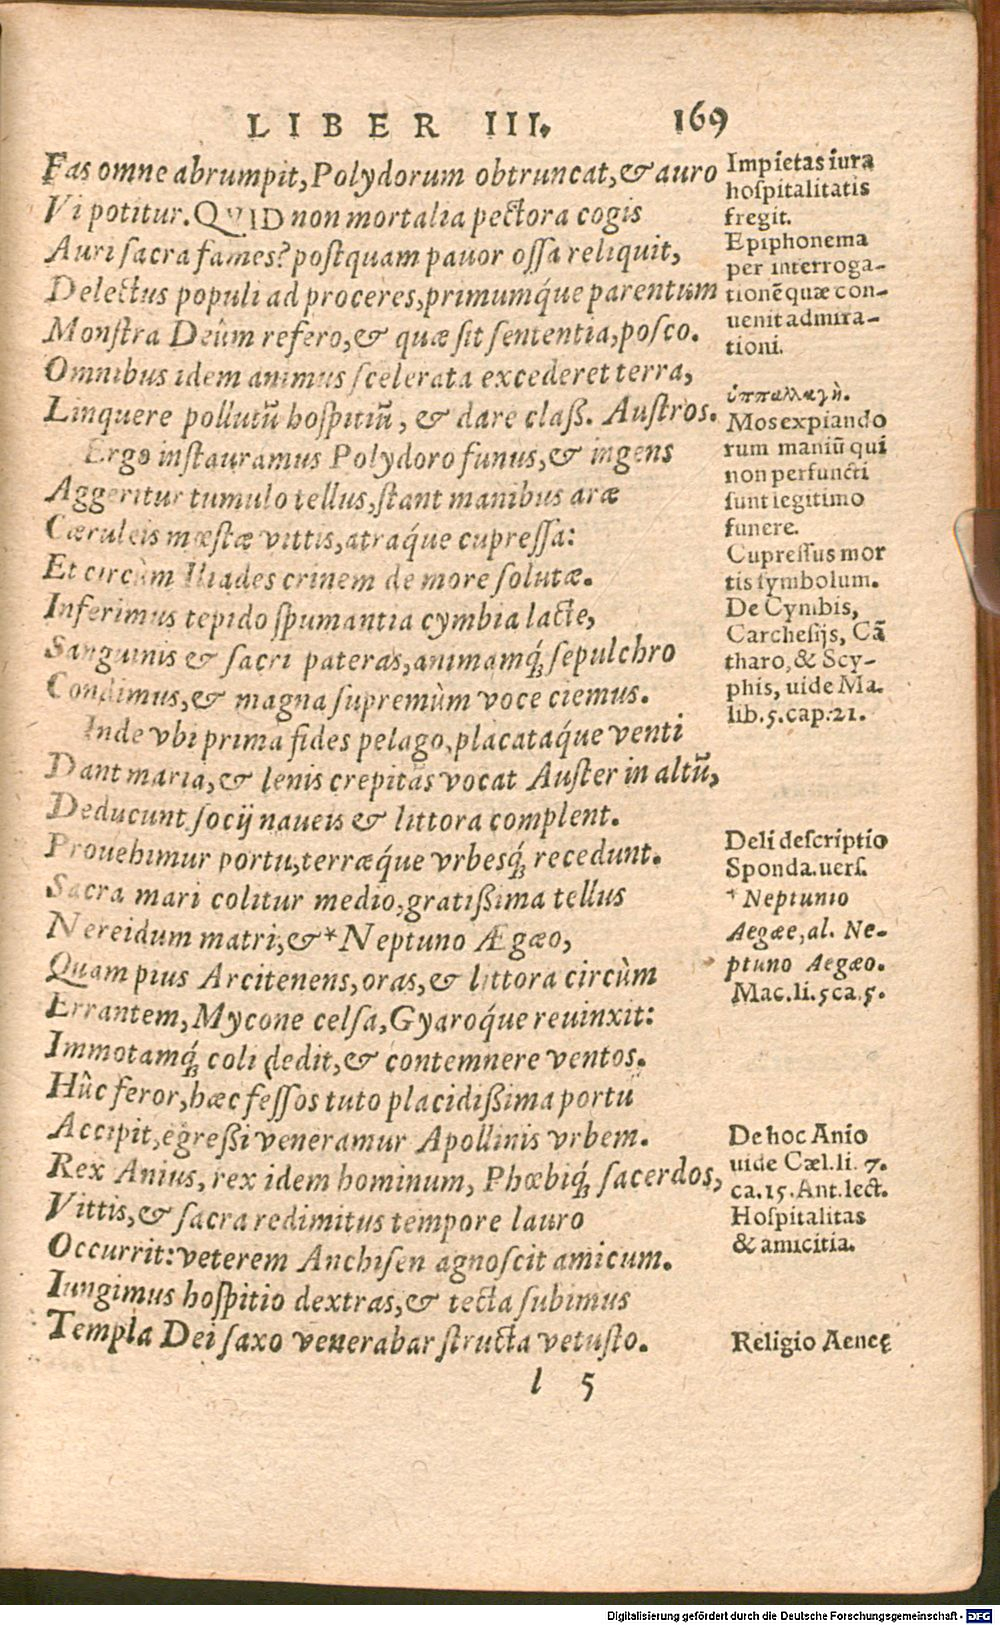 LIBER III. 169
Fas omne abrumpit, Polydorum obtruncat, & auro
Vi potitur. QVID non mortalia pectora cogis
Auri sacra fames? postquam pauor ossa reliquit,
Delectus populi ad proceres, primumq́ue parentum
Monstra Deûm refero, & quæ sit sententia, posco.
Omnibus idem animus scelerata excederet terra,
Linquere pollutũ hospitiũ, & dare claß. Austros.
Ergo instauramus Polydoro funus, & ingens
Aggeritur tumulo tellus, stant manibus aræ
Cæruleis mœstæ vittis, atraq́ue cupressa:
Et circùm Iliades crinem de more solutæ.
Inferimus tepido spumantia cymbia lacte,
Sanguinis & sacri pateras, animamq́; sepulchro
Condimus, & magna supremùm voce ciemus.
Inde vbi prima fides pelago, placataq́ue venti
Dant maria, & lenis crepitãs vocat Auster in altũ,
Deducunt socij naueis & littora complent.
Prouehimur portu, terræq́ue vrbesq́; recedunt.
Sacra mari colitur medio, gratißima tellus
Nereidum matri, & *Neptuno Ægæo,
Quam pius Arcitenens, oras, & littora circùm
Errantem, Mycone celsa, Gyaroq́ue reuinxit:
Immotamq́; coli dedit, & contemnere ventos.
Hûc feror, hæc fessos tuto placidißima portu
Accipit, egreßi veneramur Apollinis vrbem.
Rex Anius, rex idem hominum, Phœbiq́; sacerdos,
Vittis, & sacra redimitus tempore lauro
Occurrit: veterem Anchisen agnoscit amicum.
Iungimus hospitio dextras, & tecta subimus
Templa Dei saxo venerabar structa vetusto.
l 5
Impietas iura
hospitalitatis
fregit.
Epiphonema
per interroga-
tionẽ quæ con-
uenit admira-
tioni.
ὑπαλλαγὴ.
Mos expiando
rum maniũ qui
non perfuncti
sunt legitimo
funere.
Cupressus mor
tis symbolum.
De Cymbis,
Carchesijs, Cã
tharo, & Scy-
phis, uide Ma.
lib. 5. cap. 21.
Deli descriptio
Sponda. uers.
* Neptunio
Aegæe, al. Ne-
ptuno Aegæo.
Mac. li. 5 ca. 5.
De hoc Anio
uide Cæl. li. 7.
ca. 15. Ant. lect.
Hospitalitas
& amicitia.
Religio Aeneę
Digitalisierung gefördert durch die Deutsche Forschungsgemeinschaft - DFG